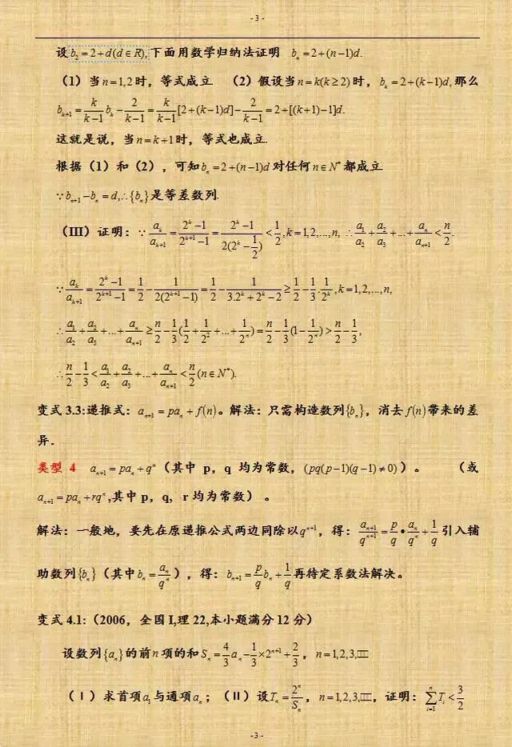 - 3 -
设b₂=2+d(d∈R),下面用数学归纳法证明 bₙ=2+(n-1)d.
(1)当n=1,2时,等式成立 (2)假设当n=k(k≥2)时,bₖ=2+(k-1)d,那么
bₖ₊₁=k/(k-1) bₖ - 2/(k-1) = k/(k-1) [2+(k-1)d] - 2/(k-1) = 2+[(k+1)-1]d.
这就是说,当n=k+1时,等式也成立.
根据(1)和(2),可知bₙ=2+(n-1)d对任何n∈N*都成立.
∵bₙ₊₁-bₙ=d,∴{bₙ}是等差数列.
(III)证明:∵aₖ/aₖ₊₁ = (2ᵏ-1)/(2ᵏ⁺¹-1) = (2ᵏ-1)/(2(2ᵏ-1/2)) < 1/2, k=1,2,...,n, ∴a₁/a₂+a₂/a₃+...+aₙ/aₙ₊₁ < n/2.
∵aₖ/aₖ₊₁ = (2ᵏ-1)/(2ᵏ⁺¹-1) = 1/2 - 1/(2(2ᵏ⁺¹-1)) = 1/2 - 1/(3.2ᵏ+2ᵏ-2) ≥ 1/2 - 1/3·1/2ᵏ, k=1,2,...,n,
∴a₁/a₂+a₂/a₃+...+aₙ/aₙ₊₁ ≥ n/2 - 1/3(1/2+1/2²+...+1/2ⁿ) = n/2 - 1/3(1-1/2ⁿ) > n/2 - 1/3,
∴n/2 - 1/3 < a₁/a₂+a₂/a₃+...+aₙ/aₙ₊₁ < n/2 (n∈N*).
变式 3.3:递推式:aₙ₊₁=paₙ+f(n)。解法:只需构造数列{bₙ},消去f(n)带来的差
异.
类型 4 aₙ₊₁=paₙ+qⁿ(其中 p,q 均为常数,(pq(p-1)(q-1)≠0))。 (或
aₙ₊₁=paₙ+rqⁿ,其中 p,q, r 均为常数) 。
解法:一般地,要先在原递推公式两边同除以qⁿ⁺¹,得:aₙ₊₁/qⁿ⁺¹ = p/q • aₙ/qⁿ + 1/q 引入辅
助数列{bₙ}(其中bₙ=aₙ/qⁿ),得:bₙ₊₁=p/q bₙ+1/q再待定系数法解决。
变式 4.1:(2006,全国 I,理 22,本小题满分 12 分)
设数列{aₙ}的前n项的和Sₙ=4/3 aₙ - 1/3×2ⁿ⁺¹ + 2/3,n=1,2,3,□□□
(Ⅰ)求首项a₁与通项aₙ;(II)设Tₙ=2ⁿ/Sₙ,n=1,2,3,□□□,证明:∑ᵢ₌₁ⁿ Tᵢ < 3/2
- 3 -